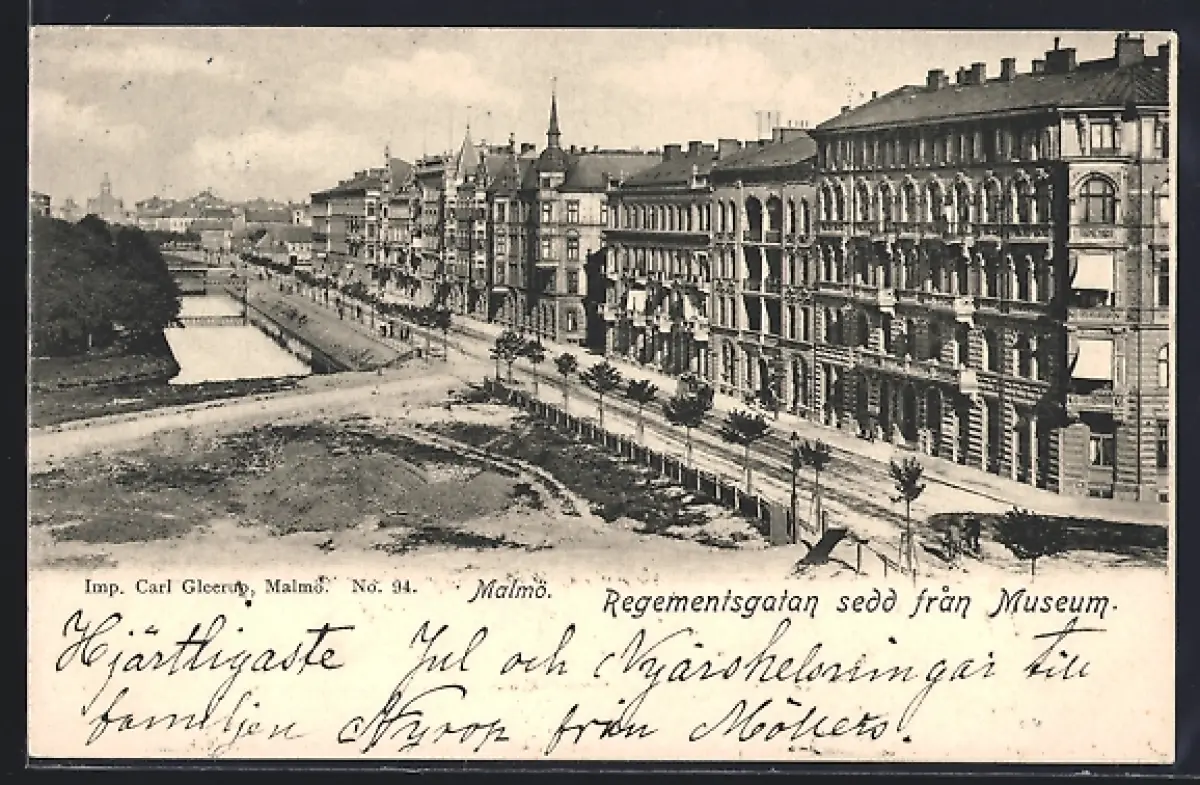 Imp. Carl Gleerup, Malmö. No. 94. Malmö. Regementsgatan sedd från Museum.
Hjärtligaste Jul och Nyårshelsningar till
familjen Nyrop från Möllers.